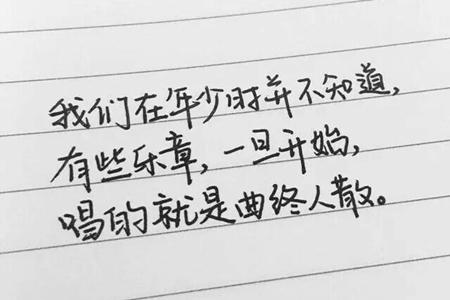 我们在年少时并不知道,
有些乐章,一旦开始,
唱的就是曲终人散。